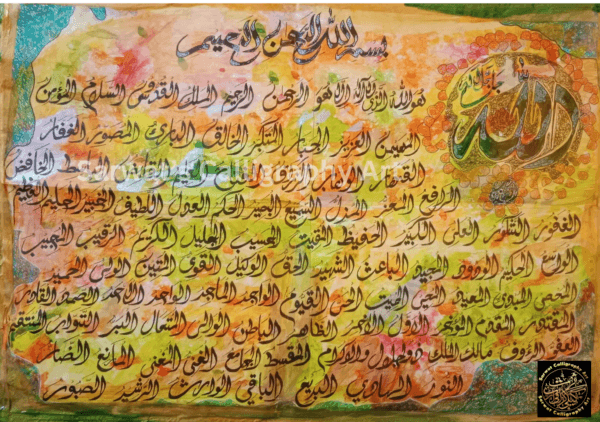 بسم الله الرحمن الرحيم
هو الله الذي لا اله الا هو الرحمن الرحيم الملك القدوس السلام المؤمن
المهيمن العزيز الجبار المتكبر الخالق الباري المصور الغفار
القهار الوهاب الرزاق الفتاح العليم القابض الباسط الخافض
الرافع المعز المذل السميع البصير الحكم العدل اللطيف الخبير الحليم العظيم
الغفور الشكور العلي الكبير الحفيظ المقيت الحسيب الجليل الكريم الرقيب المجيب
الواسع الحكيم الودود المجيد الباعث الشهيد الحق الوكيل القوي المتين الولي الحميد
المحصي المبدي المعيد المحي المميت الحي القيوم الواجد الماجد الواحد الاحد الصمد القادر
المقتدر المقدم المؤخر الاول الاخر الظاهر الباطن الوالي المتعال البر التواب المنتقم
العفو الرؤف مالك الملك ذوالجلال والاكرام المقسط الجامع الغني المغني المانع الضار
النور الهادي البديع الباقي الوارث الرشيد الصبور
الله جل جلاله
Sanwal Calligraphy Art
Sanwal Calligraphy Art
Sanwal Calligraphy Art